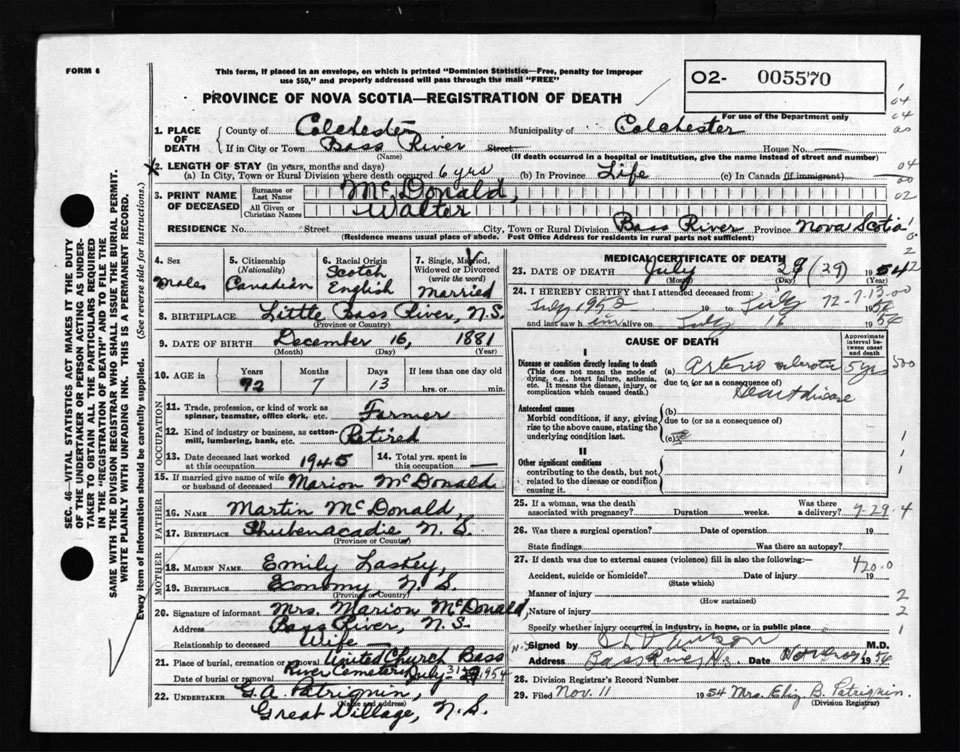 FORM 6
This form, if placed in an envelope, on which is printed "Dominion Statistics—Free, penalty for improper
use $50," and properly addressed will pass through the mail "FREE"
O2- 005570
For use of the Department only
PROVINCE OF NOVA SCOTIA—REGISTRATION OF DEATH
1. PLACE OF DEATH County of Colchester Municipality of Colchester
If in City or Town Bass River Street House No. —
(Name) (If death occurred in a hospital or institution, give the name instead of street and number)
2. LENGTH OF STAY (in years, months and days)
(a) In City, Town or Rural Division where death occurred 6 yrs (b) In Province Life (c) In Canada (if immigrant) —
3. PRINT NAME OF DECEASED Surname or Last Name McDonald,
All Given or Christian Names Walter
RESIDENCE No. Street City, Town or Rural Division Bass River Province Nova Scotia
(Residence means usual place of abode. Post Office Address for residents in rural parts not sufficient)
4. Sex Male
5. Citizenship (Nationality) Canadian
6. Racial Origin Scotch English
7. Single, Married, Widowed or Divorced (write the word) Married
8. BIRTHPLACE Little Bass River, N.S.
(Province or Country)
9. DATE OF BIRTH December 16, 1881
(Month) (Day) (Year)
10. AGE in Years 72 Months 7 Days 13 If less than one day old hrs. or min.
OCCUPATION
11. Trade, profession, or kind of work as spinner, teamster, office clerk, etc. Farmer
12. Kind of industry or business, as cotton-mill, lumbering, bank, etc. Retired
13. Date deceased last worked at this occupation 1945
14. Total yrs. spent in this occupation —
15. If married give name of wife or husband of deceased Marion McDonald
FATHER
16. NAME Martin McDonald,
17. BIRTHPLACE Shubenacadie N.S.
(Province or Country)
MOTHER
18. MAIDEN NAME Emily Laskey,
19. BIRTHPLACE Economy N.S.
(Province or Country)
20. Signature of informant Mrs. Marion McDonald,
Address Bass River, N.S.
Relationship to deceased Wife
21. Place of burial, cremation or removal United Church Bass River Cemetery
Date of burial or removal July 31 1954
22. UNDERTAKER G.A. Patriquin,
(Name and address)
Great Village, N.S.
MEDICAL CERTIFICATE OF DEATH
23. DATE OF DEATH July 29 (29) 1954
(Month) (Day)
24. I HEREBY CERTIFY that I attended deceased from:
July 1952 to July 1954
72-7-13-00
and last saw him alive on July 16 1954
CAUSE OF DEATH
Approximate interval between onset and death
I
Disease or condition directly leading to death
(This does not mean the mode of dying, e.g., heart failure, asthenia, etc. It means the disease, injury, or complication which caused death.)
(a) Arterio sclerotic 5 yrs
due to (or as a consequence of)
Heart disease
Antecedent causes
Morbid conditions, if any, giving rise to the above cause, stating the underlying condition last.
(b)
due to (or as a consequence of)
(c)
II
Other significant conditions
contributing to the death, but not related to the disease or condition causing it.
25. If a woman, was the death associated with pregnancy? Duration weeks. Was there a delivery? 7-29-4
26. Was there a surgical operation? Date of operation 19
State findings Was there an autopsy?
27. If death was due to external causes (violence) fill in also the following:— 420.0
Accident, suicide or homicide? Date of injury 19
(State which)
Manner of injury
(How sustained)
Nature of injury
Specify whether injury occurred in industry, in home, or in public place
Signed by M.D.
Address Bass River N.S. Date 1954
28. Division Registrar's Record Number
29. Filed Nov. 11 1954 Mrs. Eliz. B. Patriquin.
(Division Registrar)
SEC. 46—VITAL STATISTICS ACT MAKES IT THE DUTY
OF THE UNDERTAKER OR PERSON ACTING AS UNDER-
TAKER TO OBTAIN ALL THE PARTICULARS REQUIRED
IN THE "REGISTRATION OF DEATH" AND TO FILE THE
SAME WITH THE DIVISION REGISTRAR WHO SHALL ISSUE THE BURIAL PERMIT.
WRITE PLAINLY WITH UNFADING INK. THIS IS A PERMANENT RECORD.
Every item of information should be carefully supplied. (See reverse side for instructions.)